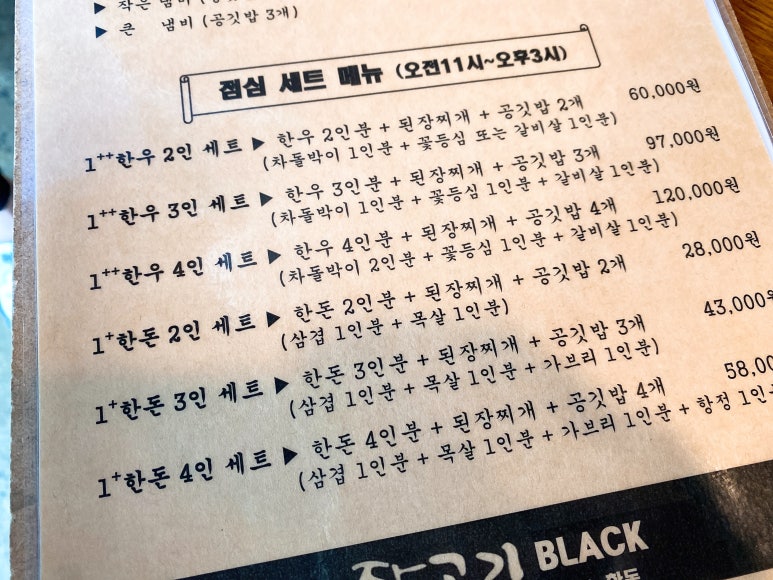 ▶ 작은 냄비
▶ 큰 냄비 (공깃밥 3개)
점심 세트 메뉴 (오전11시~오후3시)
1++한우 2인 세트 ▶ 한우 2인분 + 된장찌개 + 공깃밥 2개 60,000원
(차돌박이 1인분 + 꽃등심 또는 갈비살 1인분)
1++한우 3인 세트 ▶ 한우 3인분 + 된장찌개 + 공깃밥 3개 97,000원
(차돌박이 1인분 + 꽃등심 1인분 + 갈비살 1인분)
1++한우 4인 세트 ▶ 한우 4인분 + 된장찌개 + 공깃밥 4개 120,000원
(차돌박이 2인분 + 꽃등심 1인분 + 갈비살 1인분)
1+한돈 2인 세트 ▶ 한돈 2인분 + 된장찌개 + 공깃밥 2개 28,000원
(삼겹 1인분 + 목살 1인분)
1+한돈 3인 세트 ▶ 한돈 3인분 + 된장찌개 + 공깃밥 3개 43,000원
(삼겹 1인분 + 목살 1인분 + 가브리 1인분)
1+한돈 4인 세트 ▶ 한돈 4인분 + 된장찌개 + 공깃밥 4개 58,00
(삼겹 1인분 + 목살 1인분 + 가브리 1인분 + 항정 1인분
BLACK